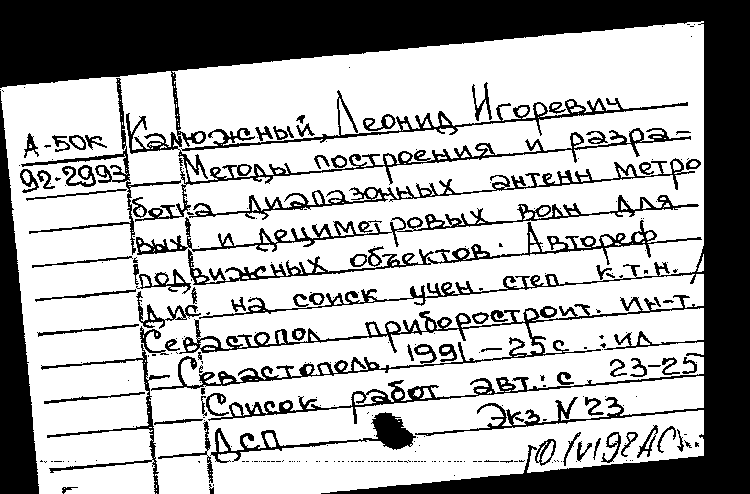 Калюжный, Леонид Игоревич
А-БОК
92-2993
Методы построения и разра=
ботка диапазонных антенн метро
вых и дециметровых волн для
подвижных объектов: Автореф
дис. на соиск учен. степ. к.т.н. /
Севастопол приборостроит. ин-т.
– Севастополь, 1991. – 25с. : ил
Список работ авт.: с. 23-25
ДСП Экз. N 23